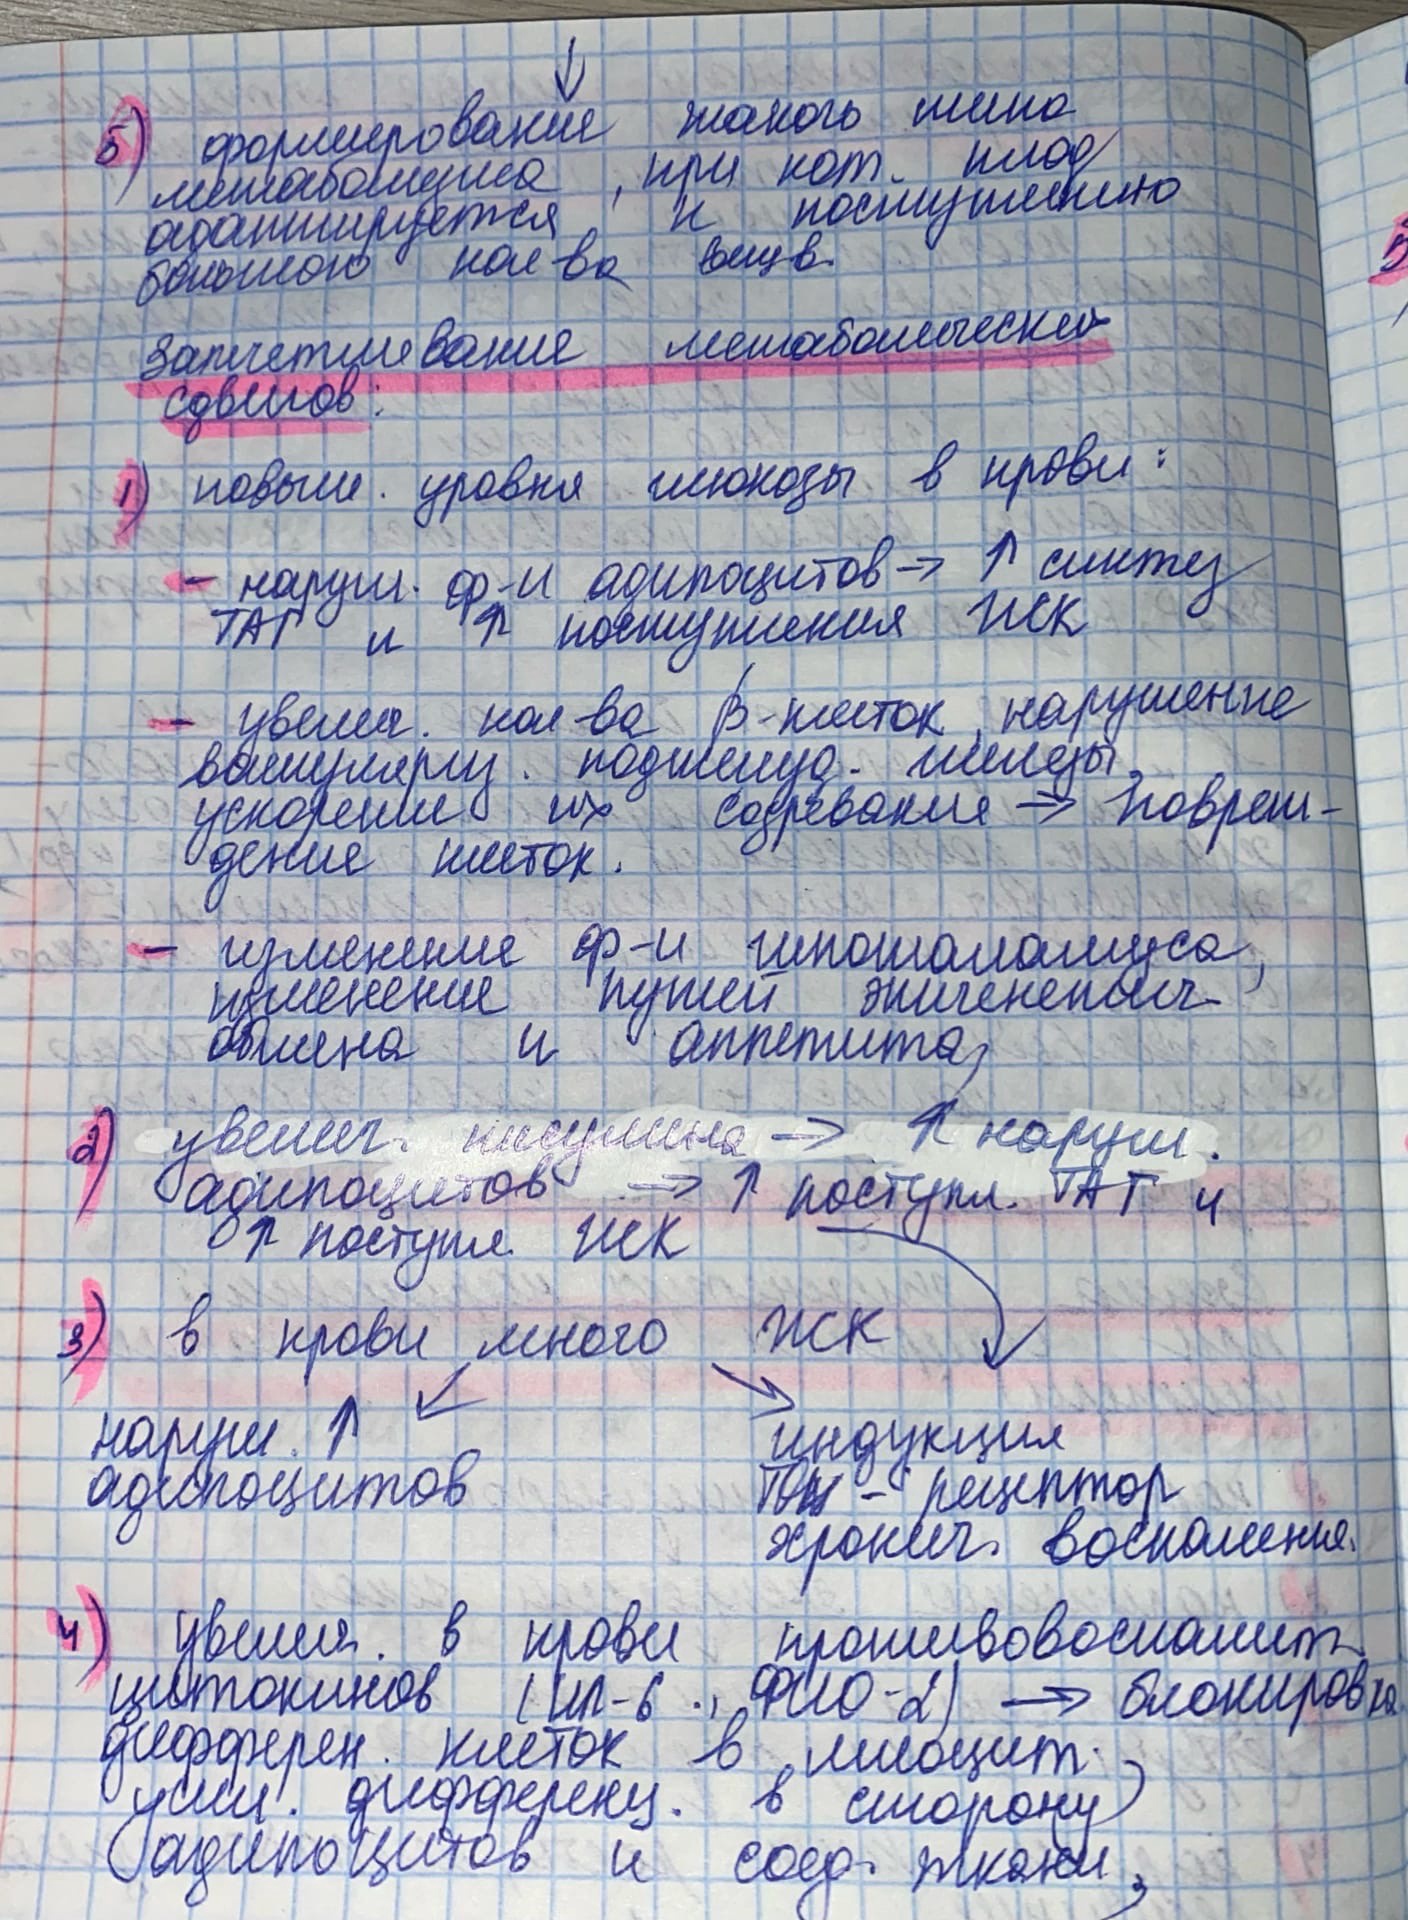 5) формирование такого типа
метаболизма, при кот. плод
адаптируется к поступлению
большого кол-ва вещв.
Запечатлевание метаболических
сдвигов:
1) повыш. уровня глюкозы в крови:
- наруш. ф-и адипоцитов → ↑ синтез
ТАГ и ↑ поступления ЖК
- увелич. кол-ва β-клеток, нарушение
васкуляриз. поджелуд. железы,
ускорение их созревания → повреж-
дение клеток.
- изменение ф-и гипоталамуса,
изменение путей
обмена и аппетита
2) увелич. инсулина → ↑ наруш.
адипоцитов → ↑ поступл. ТАГ и
↑ поступл. ЖК
3) в крови много ЖК
наруш. ↑
адипоцитов
индукция
Толл-рецептор
хронич. воспаления.
4) увелич. в крови противовоспалит.
цитокинов (ИЛ-6., ФНО-2) → блокировка
дифферен. клеток в миоцит.
усил. дифференц. в сторону
адипоцитов и соед. ткани,
5